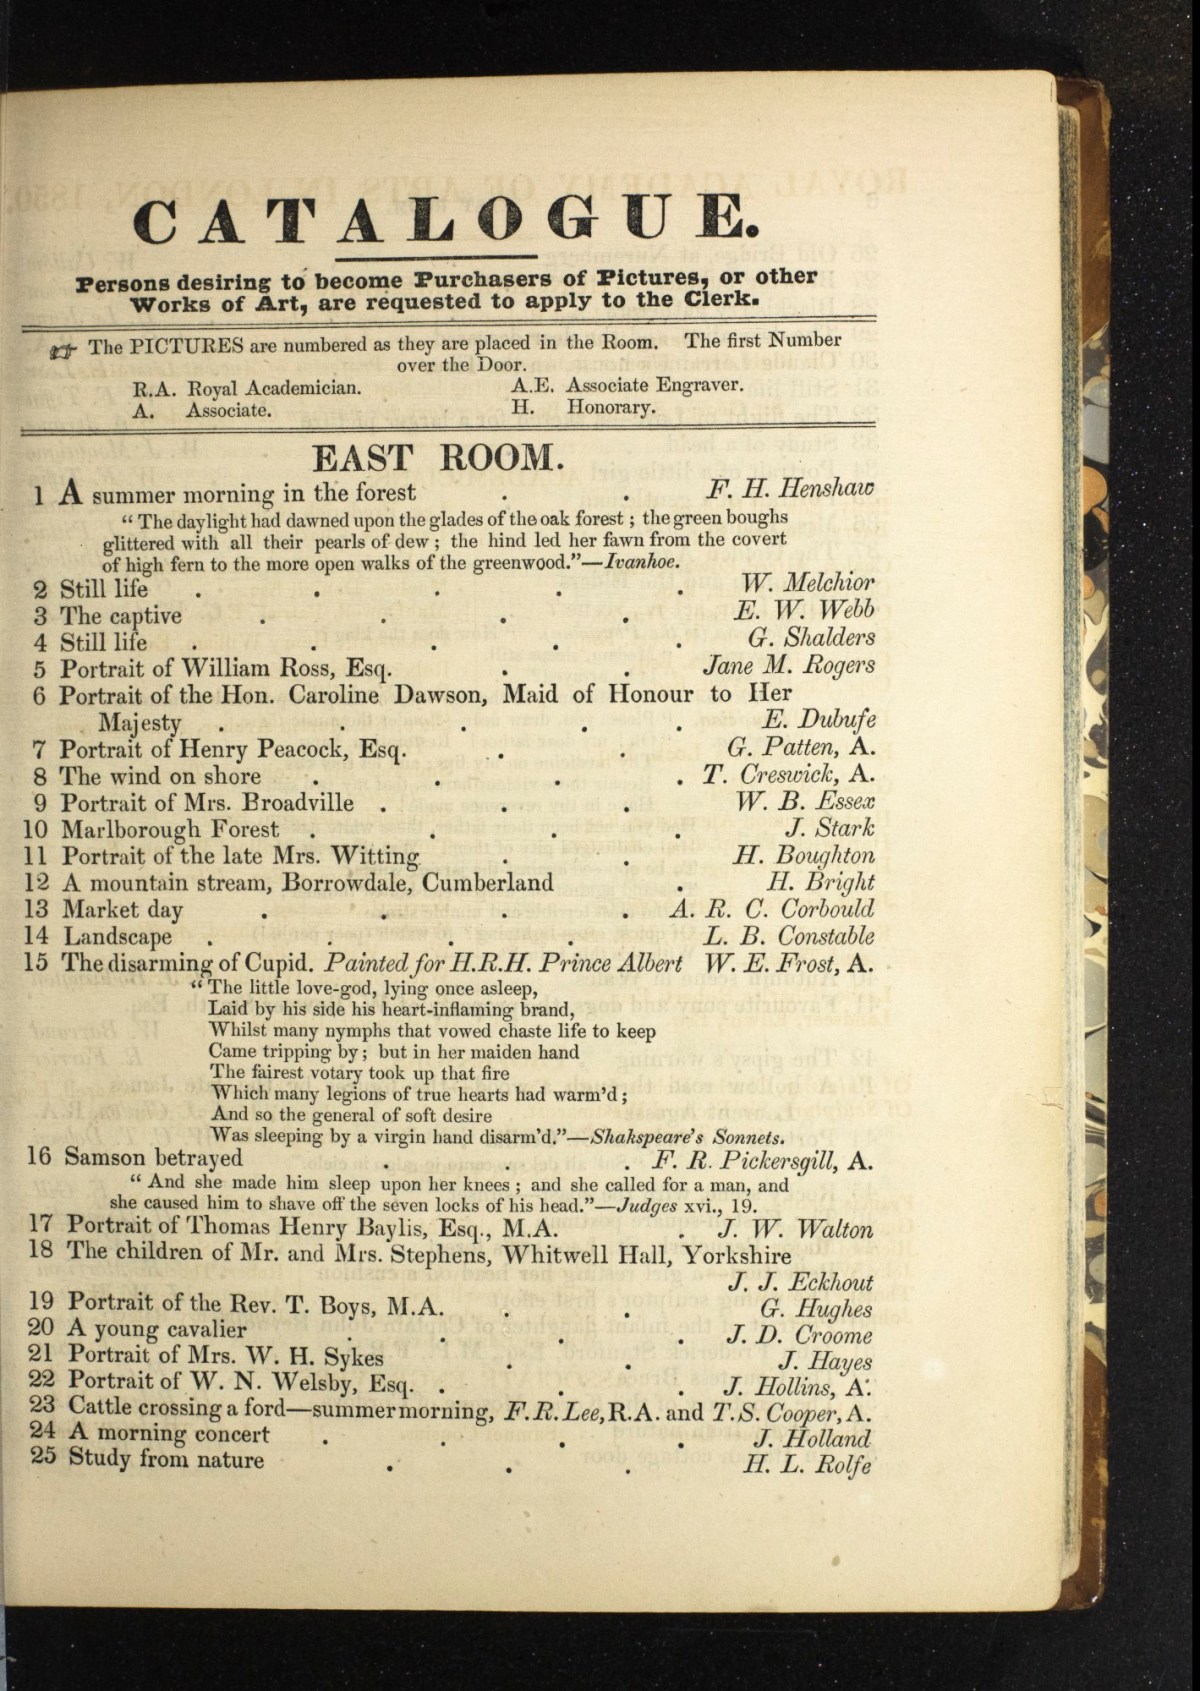 CATALOGUE.
Persons desiring to become Purchasers of Pictures, or other
Works of Art, are requested to apply to the Clerk.
☞ The PICTURES are numbered as they are placed in the Room. The first Number
over the Door.
R.A. Royal Academician. A.E. Associate Engraver.
A. Associate. H. Honorary.
EAST ROOM.
1 A summer morning in the forest . . F. H. Henshaw
“ The daylight had dawned upon the glades of the oak forest ; the green boughs
glittered with all their pearls of dew ; the hind led her fawn from the covert
of high fern to the more open walks of the greenwood.”—Ivanhoe.
2 Still life . . . . . W. Melchior
3 The captive . . . . E. W. Webb
4 Still life . . . . . G. Shalders
5 Portrait of William Ross, Esq. . . Jane M. Rogers
6 Portrait of the Hon. Caroline Dawson, Maid of Honour to Her
Majesty . . . . . E. Dubufe
7 Portrait of Henry Peacock, Esq. . . G. Patten, A.
8 The wind on shore . . . . T. Creswick, A.
9 Portrait of Mrs. Broadville . . . W. B. Essex
10 Marlborough Forest . . . . J. Stark
11 Portrait of the late Mrs. Witting . . H. Boughton
12 A mountain stream, Borrowdale, Cumberland . H. Bright
13 Market day . . . . A. R. C. Corbould
14 Landscape . . . . L. B. Constable
15 The disarming of Cupid. Painted for H.R.H. Prince Albert W. E. Frost, A.
“ The little love-god, lying once asleep,
Laid by his side his heart-inflaming brand,
Whilst many nymphs that vowed chaste life to keep
Came tripping by ; but in her maiden hand
The fairest votary took up that fire
Which many legions of true hearts had warm’d ;
And so the general of soft desire
Was sleeping by a virgin hand disarm’d.”—Shakspeare’s Sonnets.
16 Samson betrayed . . . F. R. Pickersgill, A.
“ And she made him sleep upon her knees ; and she called for a man, and
she caused him to shave off the seven locks of his head.”—Judges xvi., 19.
17 Portrait of Thomas Henry Baylis, Esq., M.A. . J. W. Walton
18 The children of Mr. and Mrs. Stephens, Whitwell Hall, Yorkshire
J. J. Eckhout
19 Portrait of the Rev. T. Boys, M.A. . . G. Hughes
20 A young cavalier . . . . J. D. Croome
21 Portrait of Mrs. W. H. Sykes . . J. Hayes
22 Portrait of W. N. Welsby, Esq. . . . J. Hollins, A.
23 Cattle crossing a ford—summer morning, F. R. Lee, R.A. and T. S. Cooper, A.
24 A morning concert . . . . J. Holland
25 Study from nature . . . H. L. Rolfe